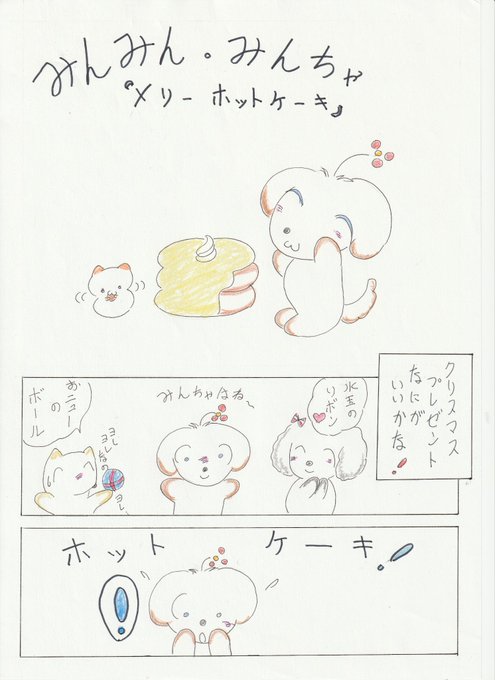 みんみん・みんちゃ
『メリーホットケーキ』
クリスマス
プレゼント
なにが
いいかな!
水玉の
リボン
みんちゃはね〜
おニュー
の
ボール
ホットケーキ!